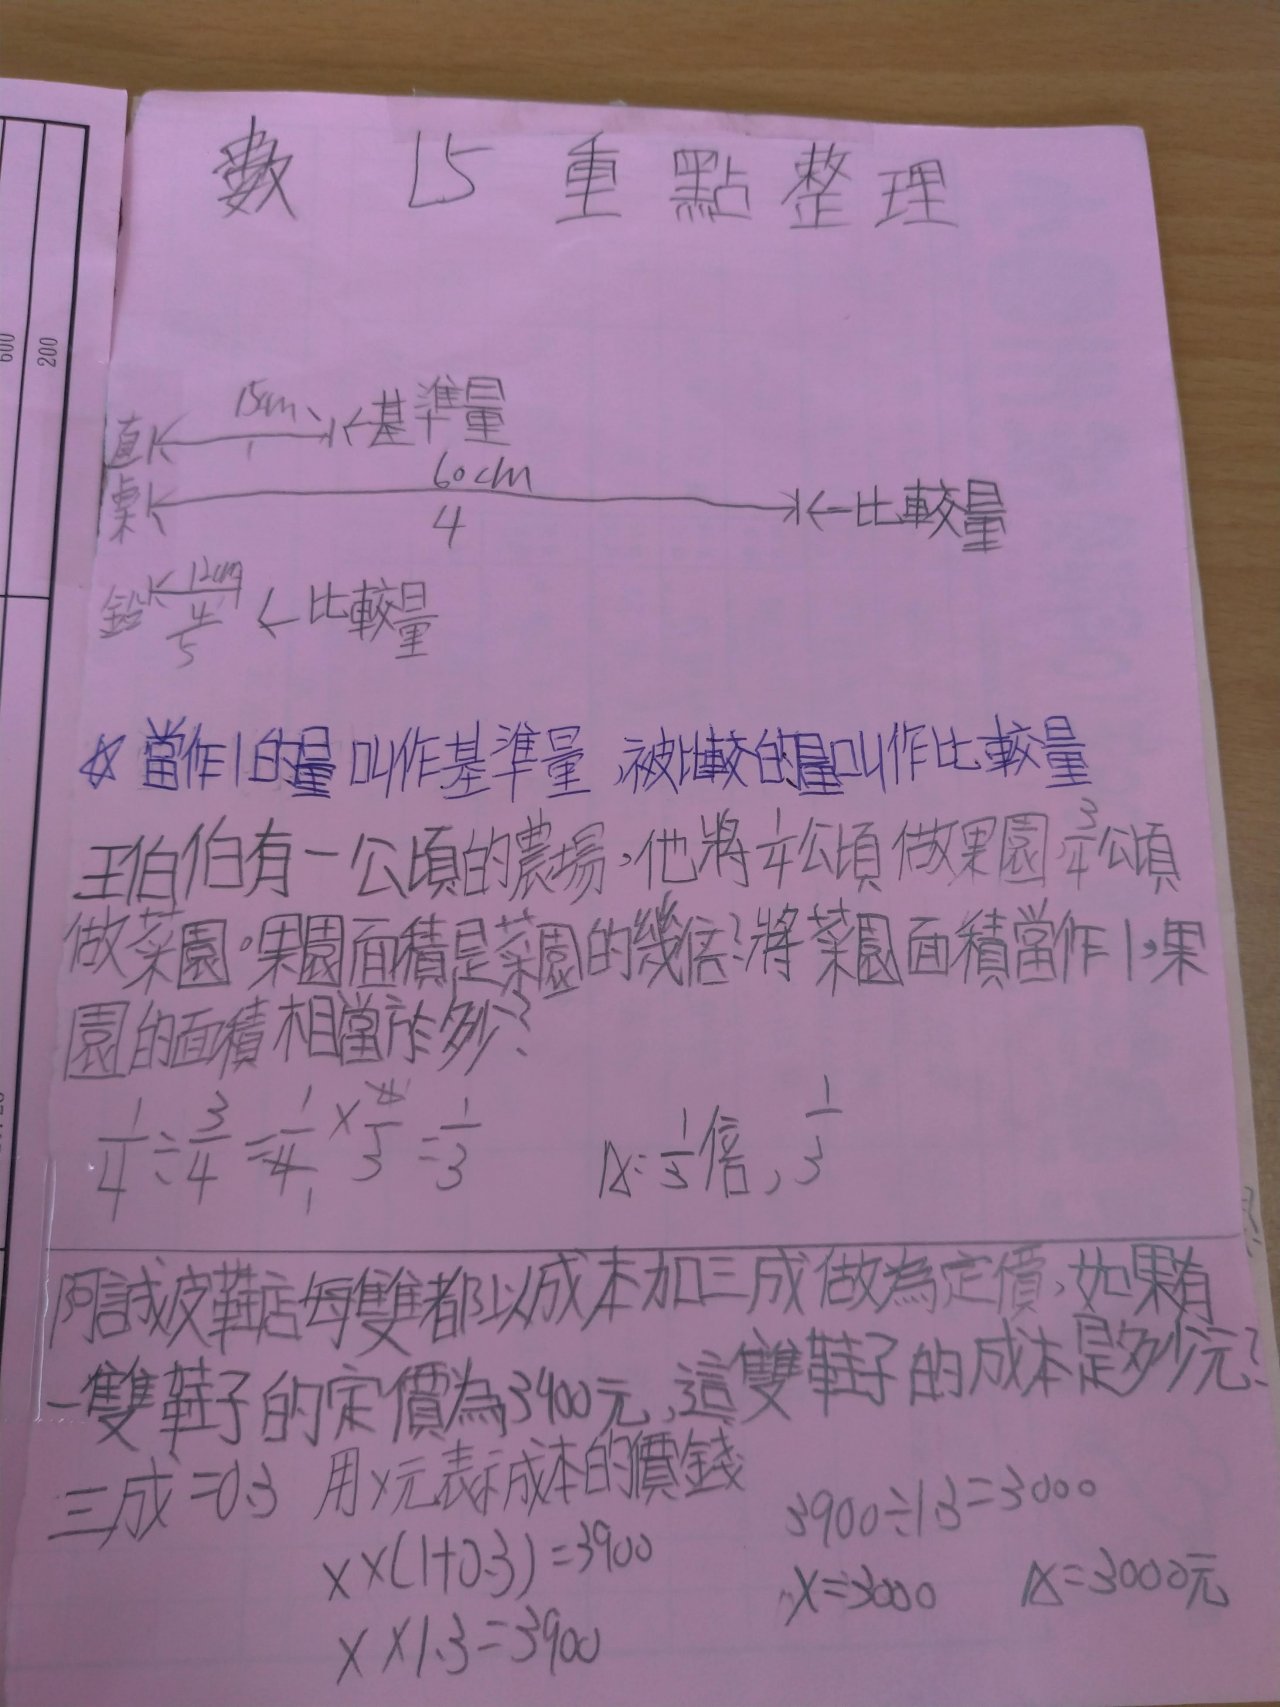 數 15 重點整理
600
200
直 15cm 1 ←基準量
桌 60cm 4 ←比較量
鉛 12cm 4/5 ←比較量
☆當作1的量叫作基準量,被比較的量叫作比較量
王伯伯有一公頃的農場,他將1/4公頃做果園,3/4公頃
做菜園。果園面積是菜園的幾倍?將菜園面積當作1,果
園的面積相當於多少?
1/4÷3/4=1/4×4/3=1/3 A:1/3倍,1/3
阿誠皮鞋店每雙都以成本加三成做為定價,如果有
一雙鞋子的定價為3900元,這雙鞋子的成本是多少元?
三成=0.3 用x元表示成本的價錢
x×(1+0.3)=3900
x×1.3=3900
3900÷1.3=3000
x=3000 A=3000元